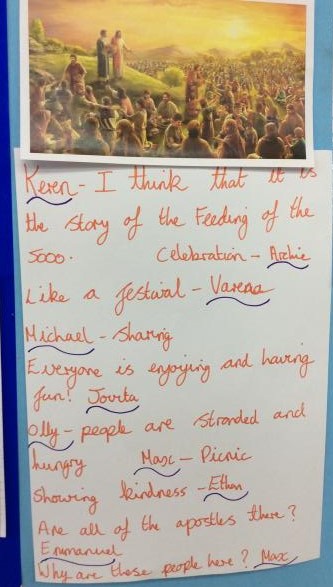 Keren - I think that it is
the story of the Feeding of the
5000. Celebration - Archie
Like a festival - Varenaa
Michael - Sharing
Everyone is enjoying and having
fun! Jovita
Olly - people are stranded and
hungry Max - Picnic
Showing kindness - Ethan
Are all of the apostles there?
Emmanuel
Why are these people here? Max